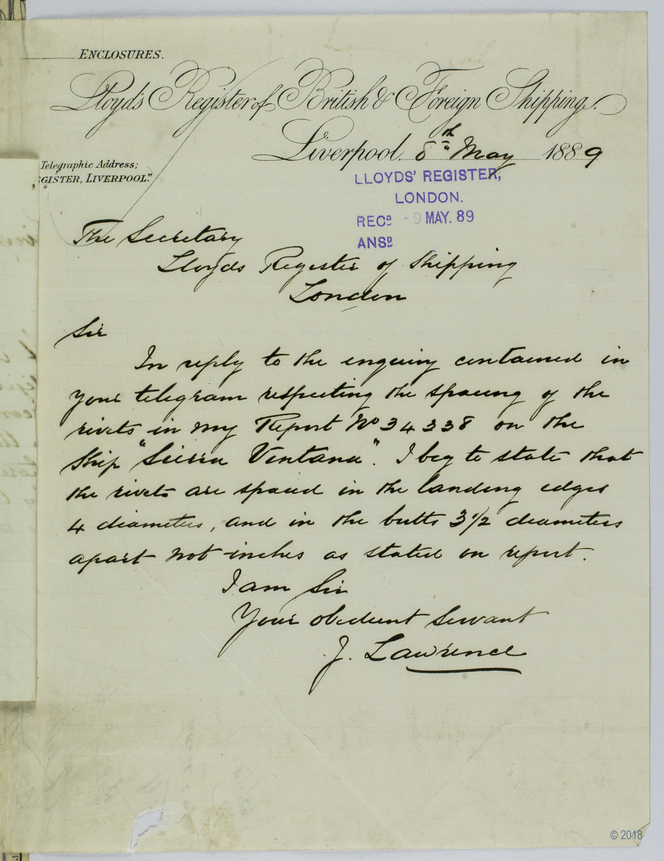 ENCLOSURES.
Lloyd's Register of British & Foreign Shipping.
Liverpool, 8th May 1889
Telegraphic Address;
GISTER, LIVERPOOL."
LLOYDS' REGISTER,
LONDON.
RECD -9 MAY. 89
ANSD
The Secretary
Lloyds Register of Shipping
London
Sir
In reply to the enquiry contained in
your telegram respecting the spacing of the
rivets in my Report No 34338 on the
Ship "Sierra Ventana". I beg to state that
the rivets are spaced in the landing edges
4 diameters, and in the butts 3 1/2 diameters
apart not inches as stated on report.
I am Sir
Your obedient Servant
J. Lawrence
© 2018